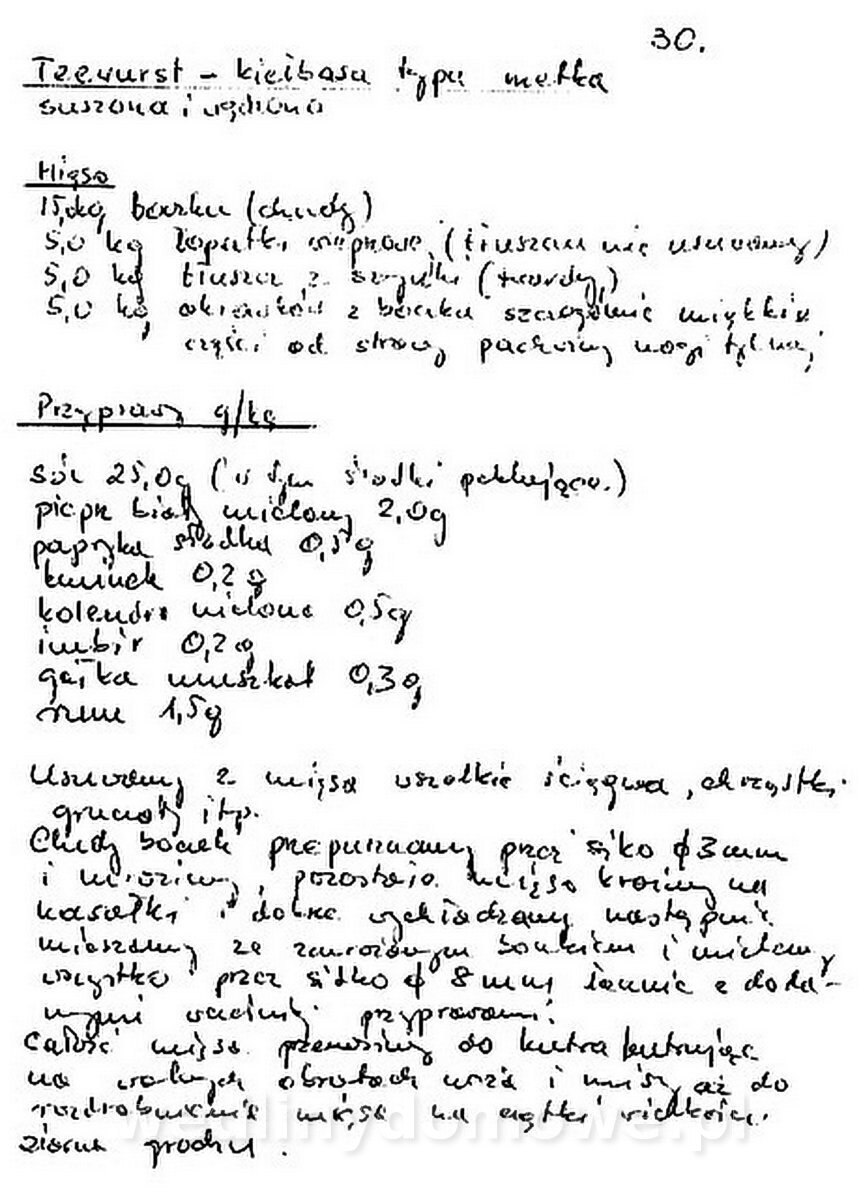 30.
Teewurst – kiełbasa typu metka
suszona i wędzona
Mięso
15,0kg boczku (chudy)
5,0 kg łopatki wieprzowej (tłuszczu nie usuwamy)
5,0 kg tłuszcz z szynki (twardy)
5,0 kg okrawków z boczku szczególnie miękkie
części od strony pachwiny nogi tylnej
Przyprawy g/kg
sól 25,0g (w tym środki peklujące.)
pieprz biały mielony 2,0g
papryka słodka 0,5g
kminek 0,2g
kolendra mielona 0,5g
imbir 0,2g
gałka muszkat 0,3g
rum 1,5g
Usuwamy z mięsa wszelkie ścięgna, chrząstki,
gruczoły itp.
Chudy boczek przepuszczamy przez sitko ϕ 3mm
i mrozimy, pozostałe mięso kroimy na
kawałki i dobrze wychładzamy następnie
mieszamy ze zmrożonym boczkiem i mielemy
wszystko przez sitko ϕ 8mm łącznie z doda-
nymi wcześniej przyprawami.
Całość mięsa przenosimy do kutra kutrując
na wolnych obrotach noża i misy aż do
rozdrobnienia mięsa na cząstki wielkości
ziarna grochu.
wedlinydomowe.pl